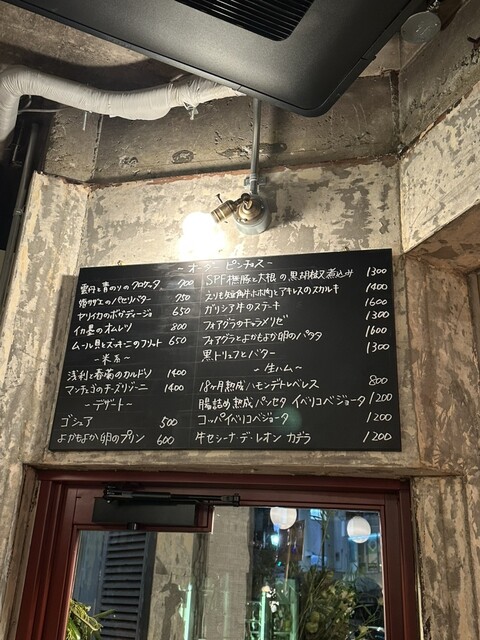 ～オーダーピンチョス～
雲丹と青のりのクロケッタ 700
姫サザエのパセリバター 750
ヤリイカのボカディージョ 650
イカ墨のオムレツ 800
ムール貝とズッキーニのフリット 650
～米系～
浅利と春菊のカルドソ 1400
マンチェゴのチーズリゾーニ 1400
～デザート～
ゴシュア 500
よかもよか卵のプリン 600
SPF豚と大根の黒胡椒煮込み 1300
えりも短角牛ホホ肉とアキレスのスカルキ 1400
ガリシア牛のステーキ 1600
フォアグラのキャラメリゼ 1300
フォアグラとよかもよか卵のパスタ 1600
黒トリュフとバター 1300
～生ハム～
18ヶ月熟成ハモンデトレベレス 800
腸詰め熟成パンセタイベリコベジョータ 1200
コッパイベリコベジョータ 1200
牛セシーナ・デ・レオン カデラ 1200